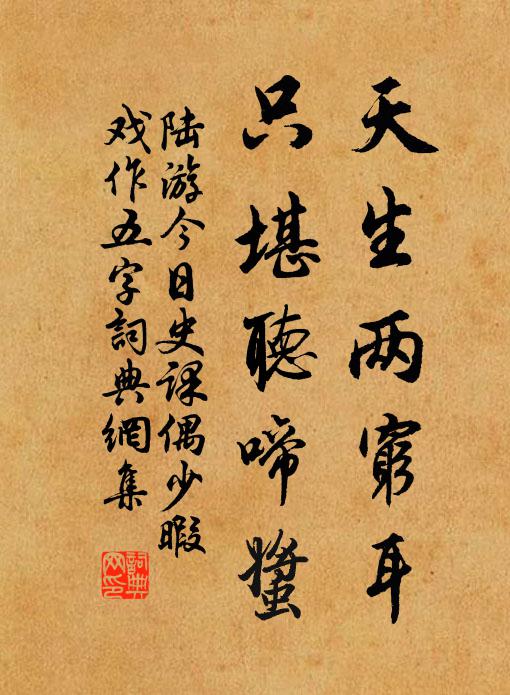 天生两窮耳
只堪聽啼螿
陆游今日史课偶少暇
戏作五字詞典網集
詞典网印